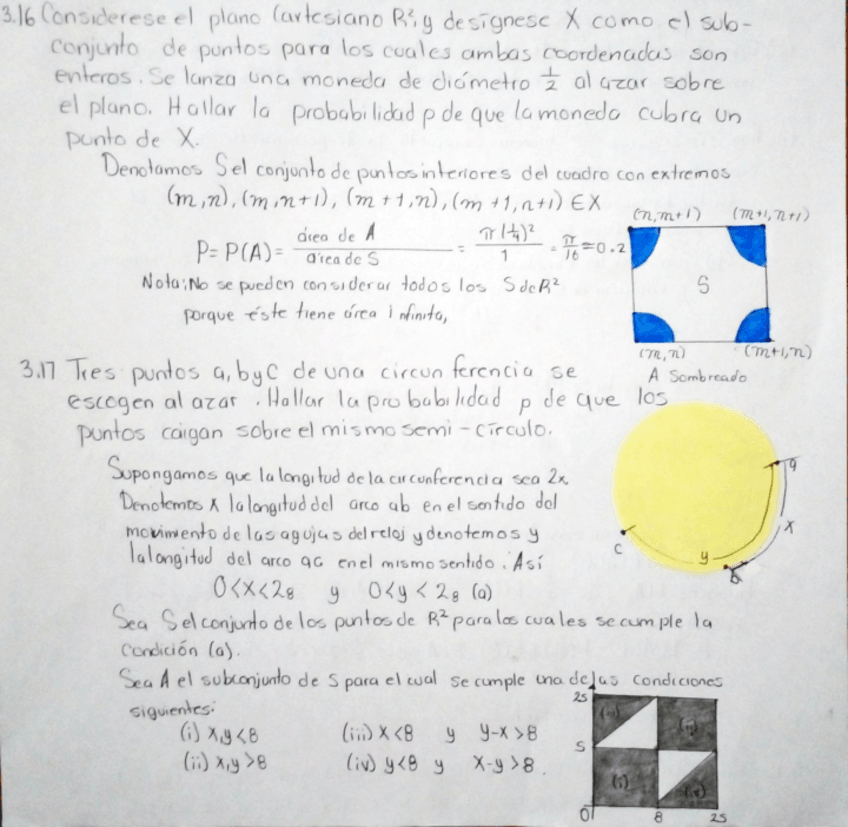 3.16 Considerese el plano Cartesiano R², y designese X como el sub-
conjunto de puntos para los cuales ambas coordenadas son
enteros. Se lanza una moneda de diámetro 1/2 al azar sobre
el plano. Hallar la probabilidad p de que la moneda cubra un
punto de X.
Denotamos S el conjunto de puntos interiores del cuadro con extremos
(m,n), (m,n+1), (m+1,n), (m+1,n+1) ∈ X
P= P(A) = área de A / area de S = π(1/4)² / 1 = π/16 = 0.2
Nota: No se pueden considerar todos los S de R²
porque éste tiene área infinita,
(n,m+1) (m+1,n+1)
S
(m,n) (m+1,n)
A Sombreado
3.17 Tres puntos a, b y C de una circunferencia se
escogen al azar. Hallar la probabilidad p de que los
puntos caigan sobre el mismo semi-círculo.
Supongamos que la longitud de la circunferencia sea 2x.
Denotemos x la longitud del arco ab en el sentido del
movimiento de las agujas del reloj y denotemos y
la longitud del arco ac en el mismo sentido. Así
0<x<28 y 0<y<28 (a)
a
x
c
y
b
Sea S el conjunto de los puntos de R² para los cuales se cumple la
condición (a).
Sea A el subconjunto de S para el cual se cumple una de las condiciones
siguientes:
(i) x,y<8 (iii) x<8 y y-x>8
(ii) x,y>8 (iv) y<8 y x-y>8.
2s
(iii) (ii)
S
(i) (iv)
0 8 2s